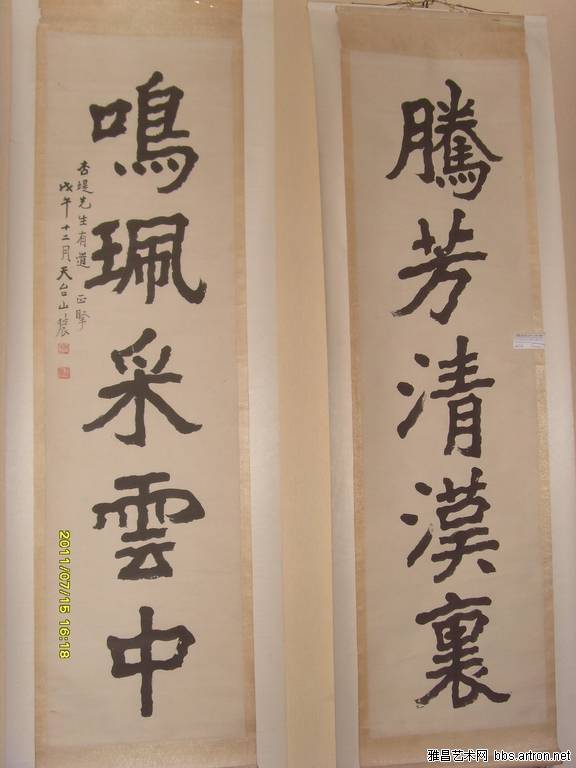 騰芳清漢裏
鳴珮采雲中
杏堤先生有道 正擥
戊午十二月天台山農
2011/07/15 16:18
雅昌艺术网 bbs.artron.net